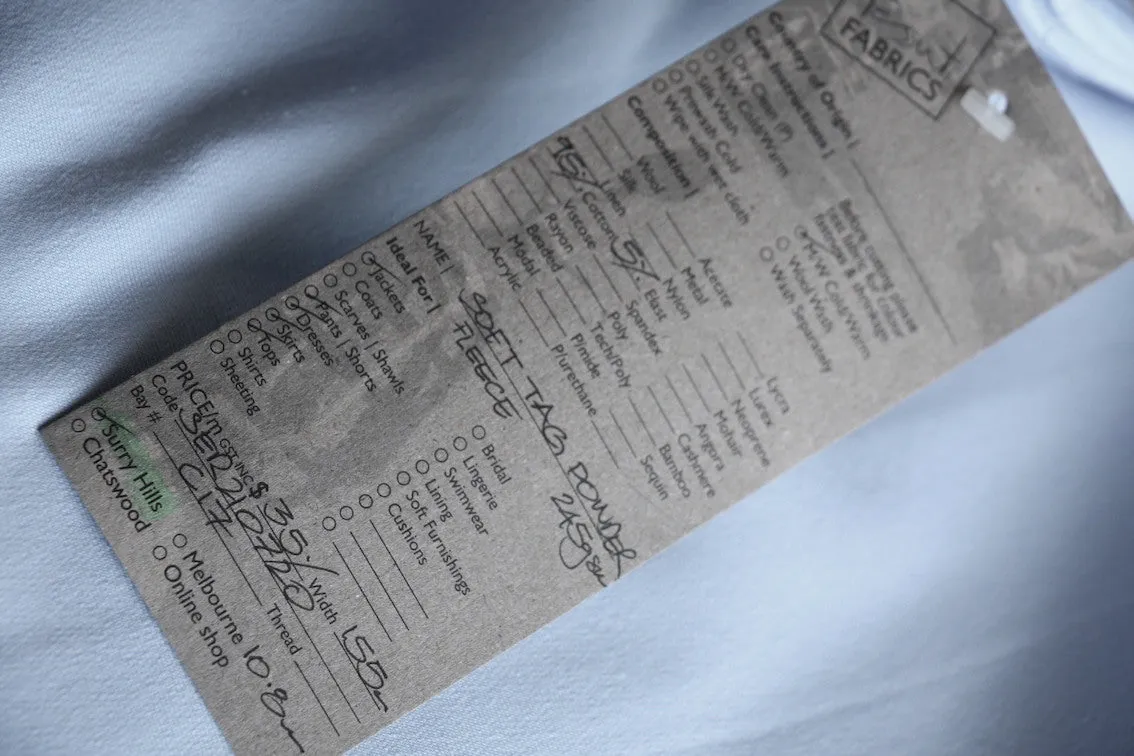 FABRICS
Country of Origin |
Care Instructions |
Before sewing please
test fabric for colour
fastness & shrinkage
○ Dry Clean (P)
○ M/W Cold/Warm
○ M/W Cold Warm
○ Silk Wash
○ Wool Wash
○ Prewash Cold
○ Wash Separately
○ Wipe with wet cloth
Composition |
Wool Acetate Lycra
Silk Metal Lurex
Linen Nylon Neoprene
95% Cotton 5% Elast Mohair
Viscose Spandex Angora
Rayon Poly Cashmere
Beaded Tech/Poly Bamboo
Modal Pimide Sequin
Acrylic Plurethane
NAME | SOFT TAG POWDER
FLEECE 245gsm
Ideal For |
Jackets Bridal
Coats Lingerie
Scarves | Shawls Swimwear
Pants | Shorts Lining
Dresses Soft Furnishings
Skirts Cushions
Tops
Shirts
Sheeting
PRICE/m GST INC $ 35 Width 155
Code SER210770
Bay # C17 Thread
Surry Hills Melbourne 10.8m
Chatswood Online shop